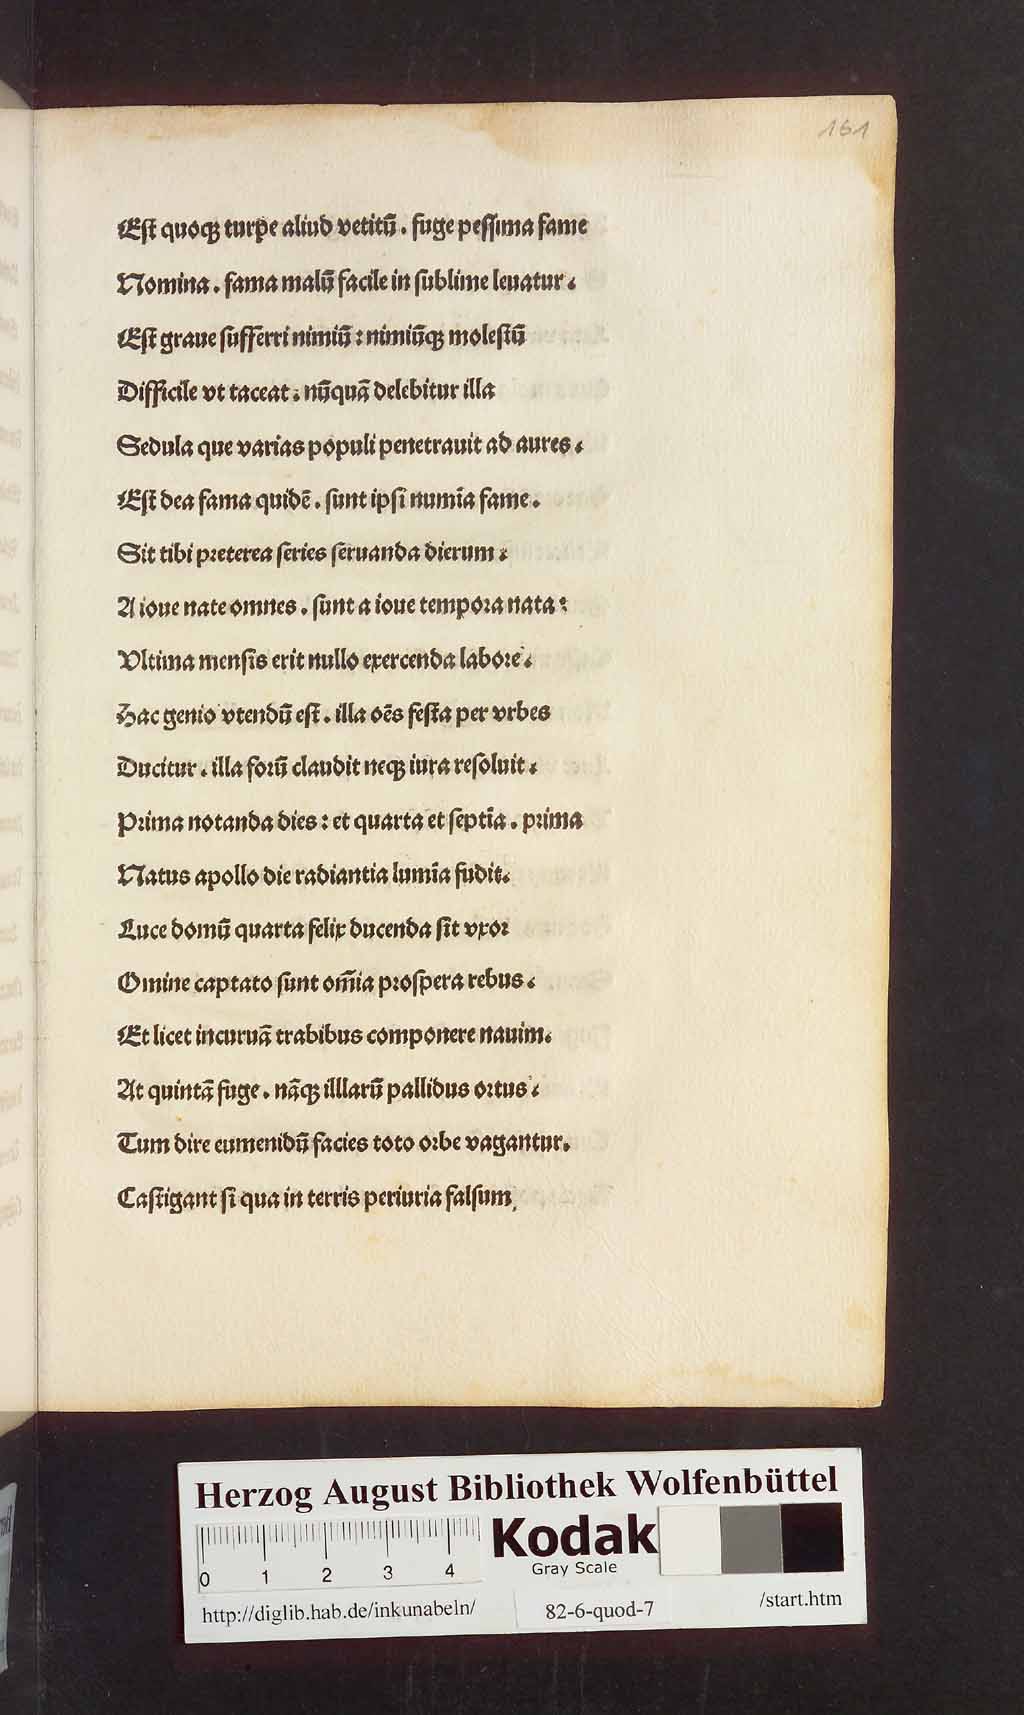 161
Eſt quoqꝫ turpe aliud vetitū. fuge peſſima fame
Nomina. fama malū facile in ſublime leuatur.
Eſt graue ſufferri nimiū: nimiūqꝫ moleſtū
Difficile vt taceat. nūquā delebitur illa
Sedula que varias populi penetrauit ad aures.
Eſt dea fama quidē. ſunt ipſi numīa fame.
Sit tibi preterea ſeries ſeruanda dierum.
A ioue nate omnes. ſunt a ioue tempora nata:
Vltima menſis erit nullo exercenda labore.
Hac genio vtendū eſt. illa oēs feſta per vrbes
Ducitur. illa forū claudit neqꝫ iura reſoluit.
Prima notanda dies: et quarta et ſeptīa. prima
Natus apollo die radiantia lumīa fudit.
Luce domū quarta felix ducenda ſit vxor
Omine captato ſunt om̄ia proſpera rebus.
Et licet incuruā trabibus componere nauim.
At quintā fuge. nāqꝫ illlarū pallidus ortus.
Tum dire eumenidū facies toto orbe vagantur.
Caſtigant ſi qua in terris periuria falſum.
Herzog August Bibliothek Wolfenbüttel
Kodak
Gray Scale
0 1 2 3 4
http://diglib.hab.de/inkunabeln/ 82-6-quod-7 /start.htm